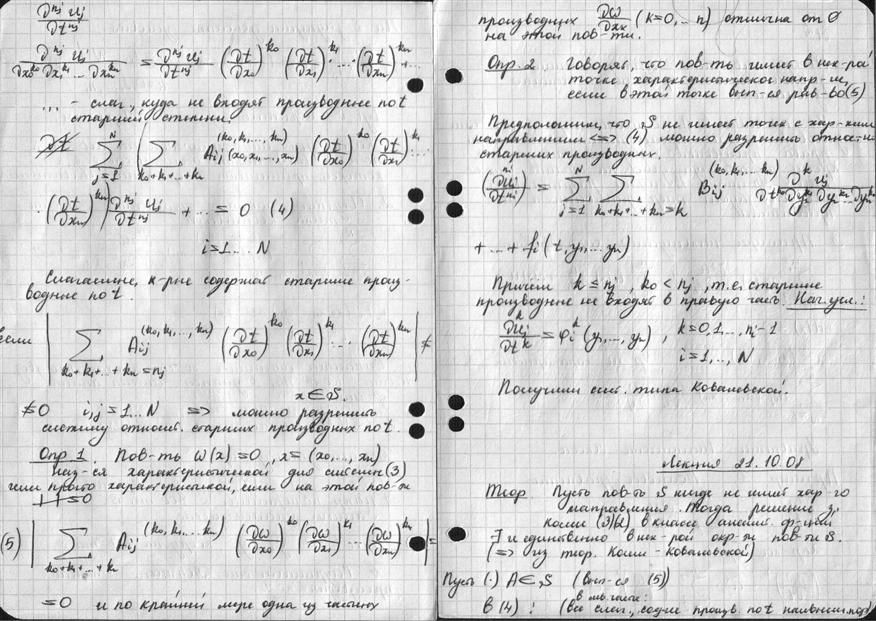 ∂^{nj} uj / ∂t^{nj}
∂^{nj} uj / ∂x0^{k0} ∂x1^{k1} ... ∂xn^{kn} = ∂^{nj} uj / ∂t^{nj} (∂t/∂x0)^{k0} (∂t/∂x1)^{k1} ... (∂t/∂xn)^{kn} + ...
... - слаг, куда не входят производные по t
старшей степени
Σ_{j=1}^{N} ( Σ_{k0+k1+...+kn} Aij^{(k0,k1,...,kn)} (x0,x1,...,xn) (∂t/∂x0)^{k0} (∂t/∂x1)^{k1} ...
· (∂t/∂xn)^{kn} ) ∂^{nj} uj / ∂t^{nj} + ... = 0 (4)
i=1...N
Слагаемые, к-рые содержат старшие произ-
водные по t.
если | Σ_{k0+k1+...+kn=nj} Aij^{(k0,k1,...,kn)} (∂t/∂x0)^{k0} (∂t/∂x1)^{k1} ... (∂t/∂xn)^{kn} | ≠
x∈S.
≠0 i,j=1...N => можно разрешить
систему относит. старших производных по t.
Опр 1. Пов-ть ω(x)=0, x=(x0,...,xn)
наз-ся характеристической для системы (3)
или просто характеристикой, если на этой пов-ти
| |=0
(5) | Σ_{k0+k1+...+kn} Aij^{(k0,k1,...,kn)} (∂ω/∂x0)^{k0} (∂ω/∂x1)^{k1} ... (∂ω/∂xn)^{kn} | =
=0 и по крайней мере одна из частных
производных ∂ω/∂xk (k=0,..n) отлична от 0
на этой пов-ти.
Опр.2 Говорят, что пов-ть имеет в нек-рой
точке характеристическое напр-ие,
если в этой точке вып-ся рав-во (5)
Предположим, что S не имеет точек с хар-ким
направлением <=> (4) можно разрешить относит-но
старших производных.
(∂^{ni} ui / ∂t^{ni}) = Σ_{j=1}^{N} Σ_{k0+k1+...+kn=k} Bij^{(k0,k1,...kn)} ∂^k uj / ∂t^{k0} ∂y1^{k1} ... ∂yn^{kn}
+ ... + fi(t, y1,...yn)
Причём k ≤ nj, k0 < nj, т.е. старшие
производные не входят в правую часть. Нач. усл.:
∂^k ui / ∂t^k = φi^k (y1,..., yn), k=0,1...,ni-1
i=1,.., N
Получили сист. типа Ковалевской.
Лекция 21.10.08
Теор. Пусть пов-ть S нигде не имеет хар-го
направления. Тогда решение з.
Коши в классе аналит. ф-ций
∃ и единственно в нек-рой окр-ти пов-ти S.
(=> из теор. Коши-Ковалевской)
Пусть (·) A∈S (вып-ся (5))
в лев. части:
в (4) : (все слаг., содер-щие произв. по t наивысш. пор)